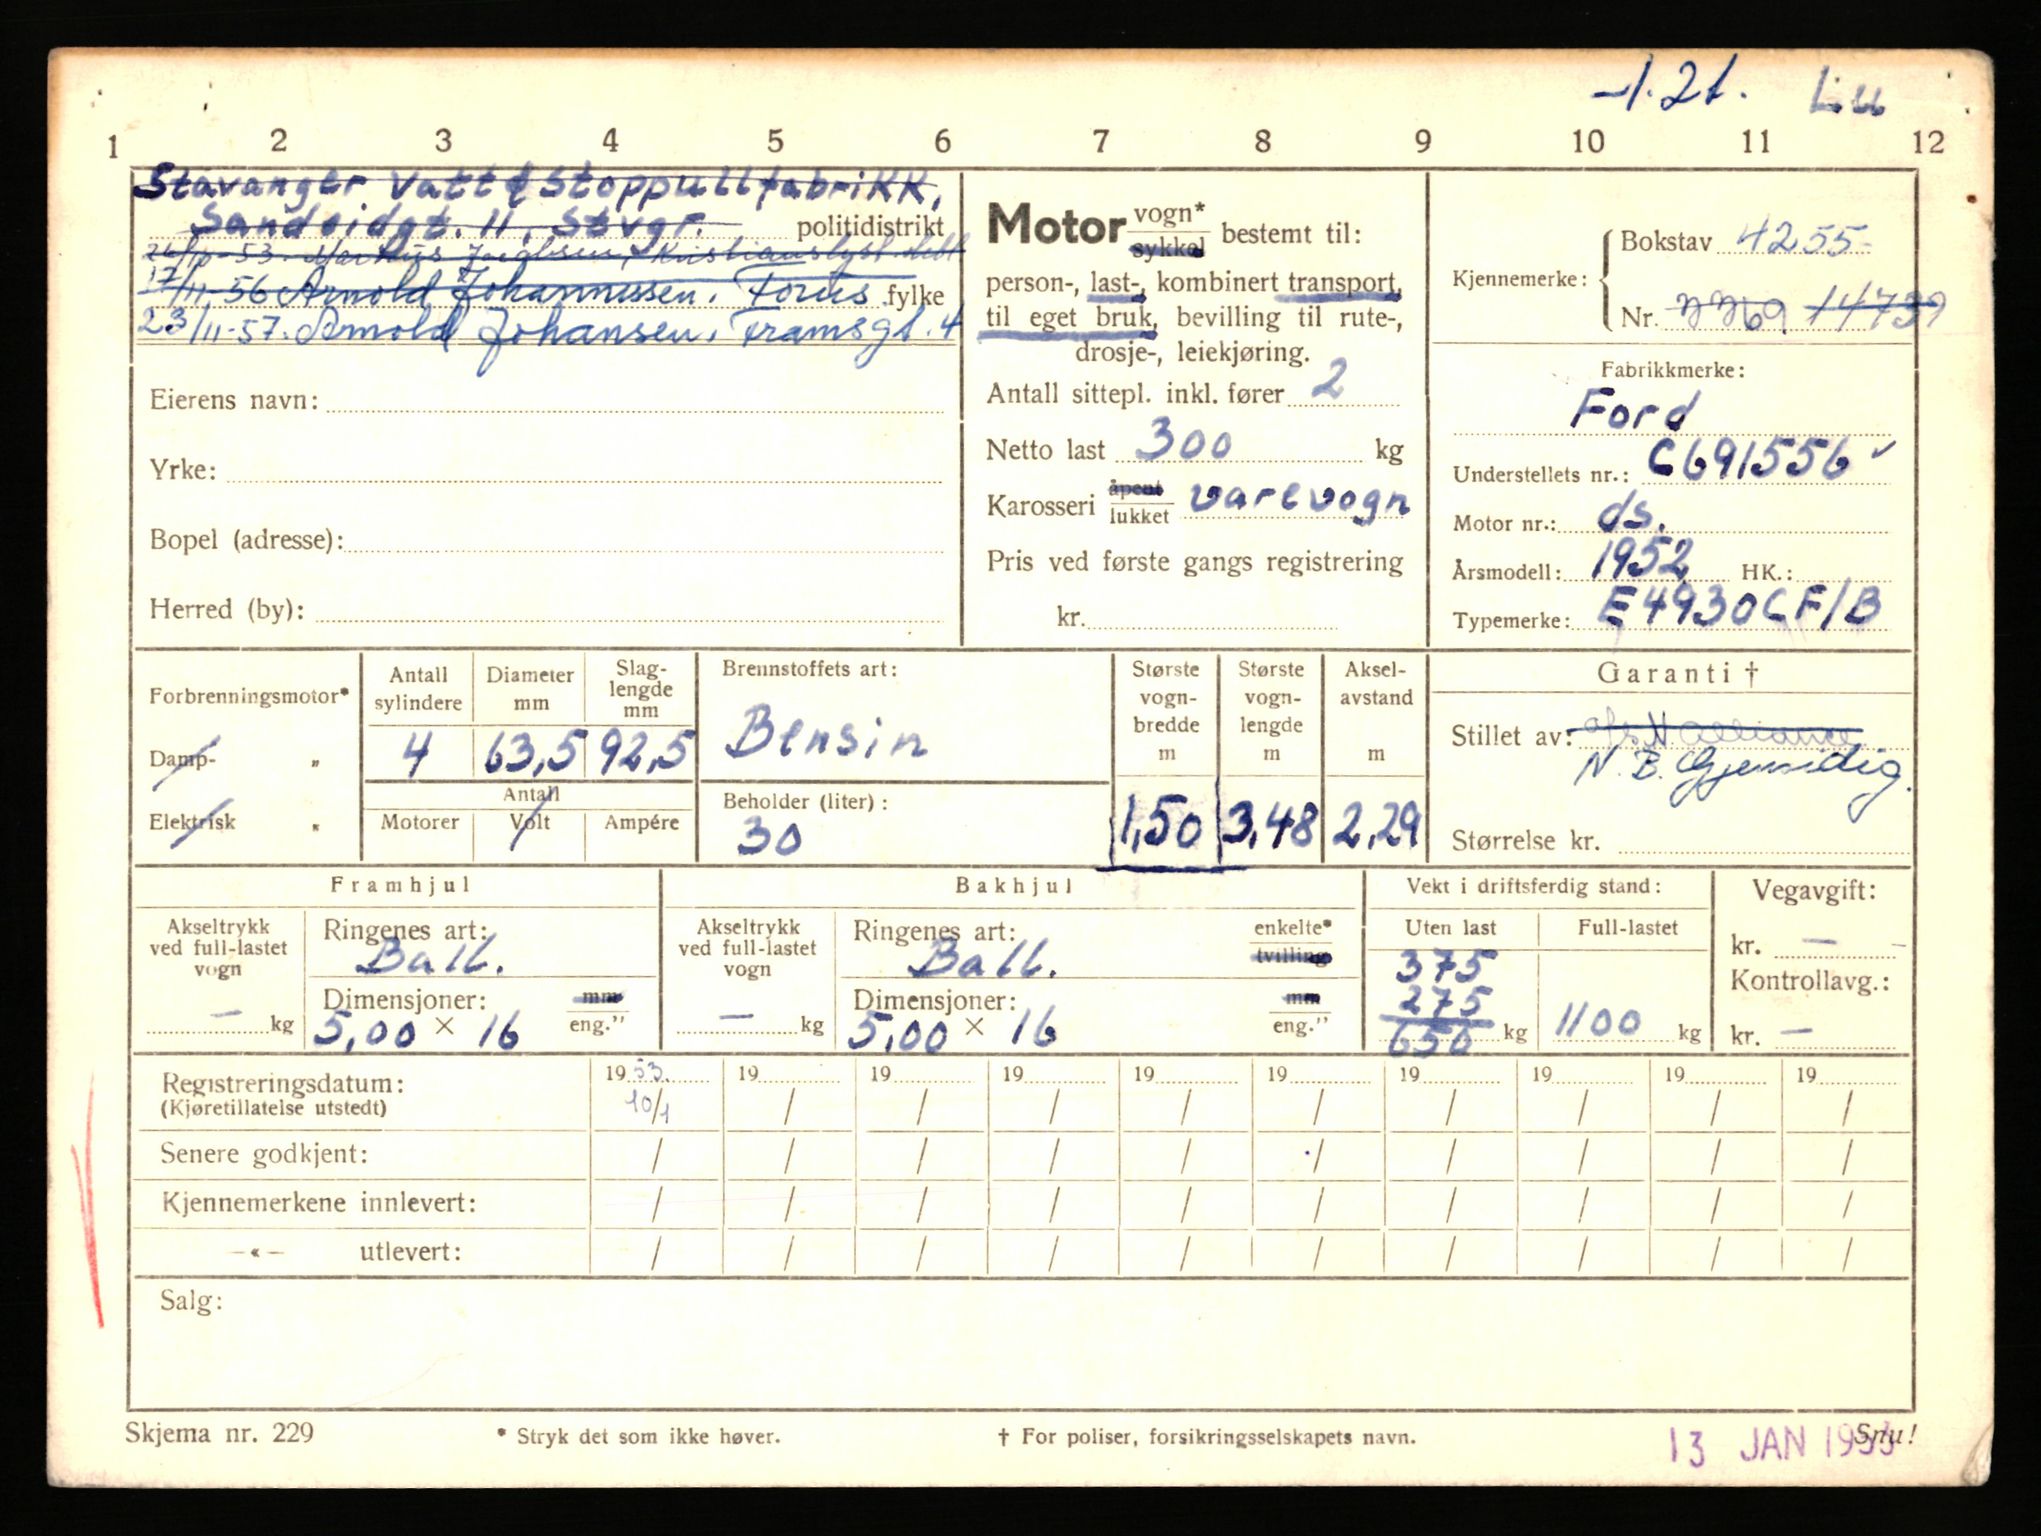 -1.21. Lu
1 2 3 4 5 6 7 8 9 10 11 12
Stavanger Vatt & Stoppullfabrikk,
Sandeidgt. 11, Stvgr. politidistrikt
53. Markus
17/11-56 Arnold Johannessen. Forus. fylke
23/11-57. Arnold Johansen. Framsgt. 4
Eierens navn:
Yrke:
Bopel (adresse):
Herred (by):
Motor vogn* sykkel bestemt til:
person-, last-, kombinert transport,
til eget bruk, bevilling til rute-,
drosje-, leiekjøring.
Antall sittepl. inkl. fører 2
Netto last 300 kg
Karosseri åpent lukket varevogn
Pris ved første gangs registrering
kr.
Kjennemerke: Bokstav 4255
Nr. 14739
Fabrikkmerke:
Ford
Understellets nr.: C691556
Motor nr.: ds.
Årsmodell: 1952 HK.:
Typemerke: E4930CF/B
Forbrenningsmotor*
Damp- „
Elektrisk „
Antall sylindere
4
Diameter mm
63,5
Slag-lengde mm
92,5
Antall
Motorer Volt Ampére
Brennstoffets art:
Bensin
Beholder (liter):
30
Største vogn-bredde m
1,50
Største vogn-lengde m
3,48
Aksel-avstand m
2,29
Garanti †
Stillet av:
N. B. Gjensidig.
Størrelse kr.
Framhjul
Akseltrykk ved full-lastet vogn
— kg
Ringenes art:
Ball.
Dimensjoner: mm
5,00 × 16 eng."
Bakhjul
Akseltrykk ved full-lastet vogn
— kg
Ringenes art: enkelte*
Ball. tvilling
Dimensjoner: mm
5,00 × 16 eng."
Vekt i driftsferdig stand:
Uten last
375
275
650 kg
Full-lastet
1100 kg
Vegavgift:
kr. —
Kontrollavg.:
kr. —
Registreringsdatum: 1953. 19 19 19 19 19 19 19 19 19
(Kjøretillatelse utstedt) 10/1 / / / / / / / / /
Senere godkjent: / / / / / / / / / /
Kjennemerkene innlevert: / / / / / / / / / /
—«— utlevert: / / / / / / / / / /
Salg:
Skjema nr. 229 * Stryk det som ikke høver. † For poliser, forsikringsselskapets navn. Snu!
13 JAN 1953